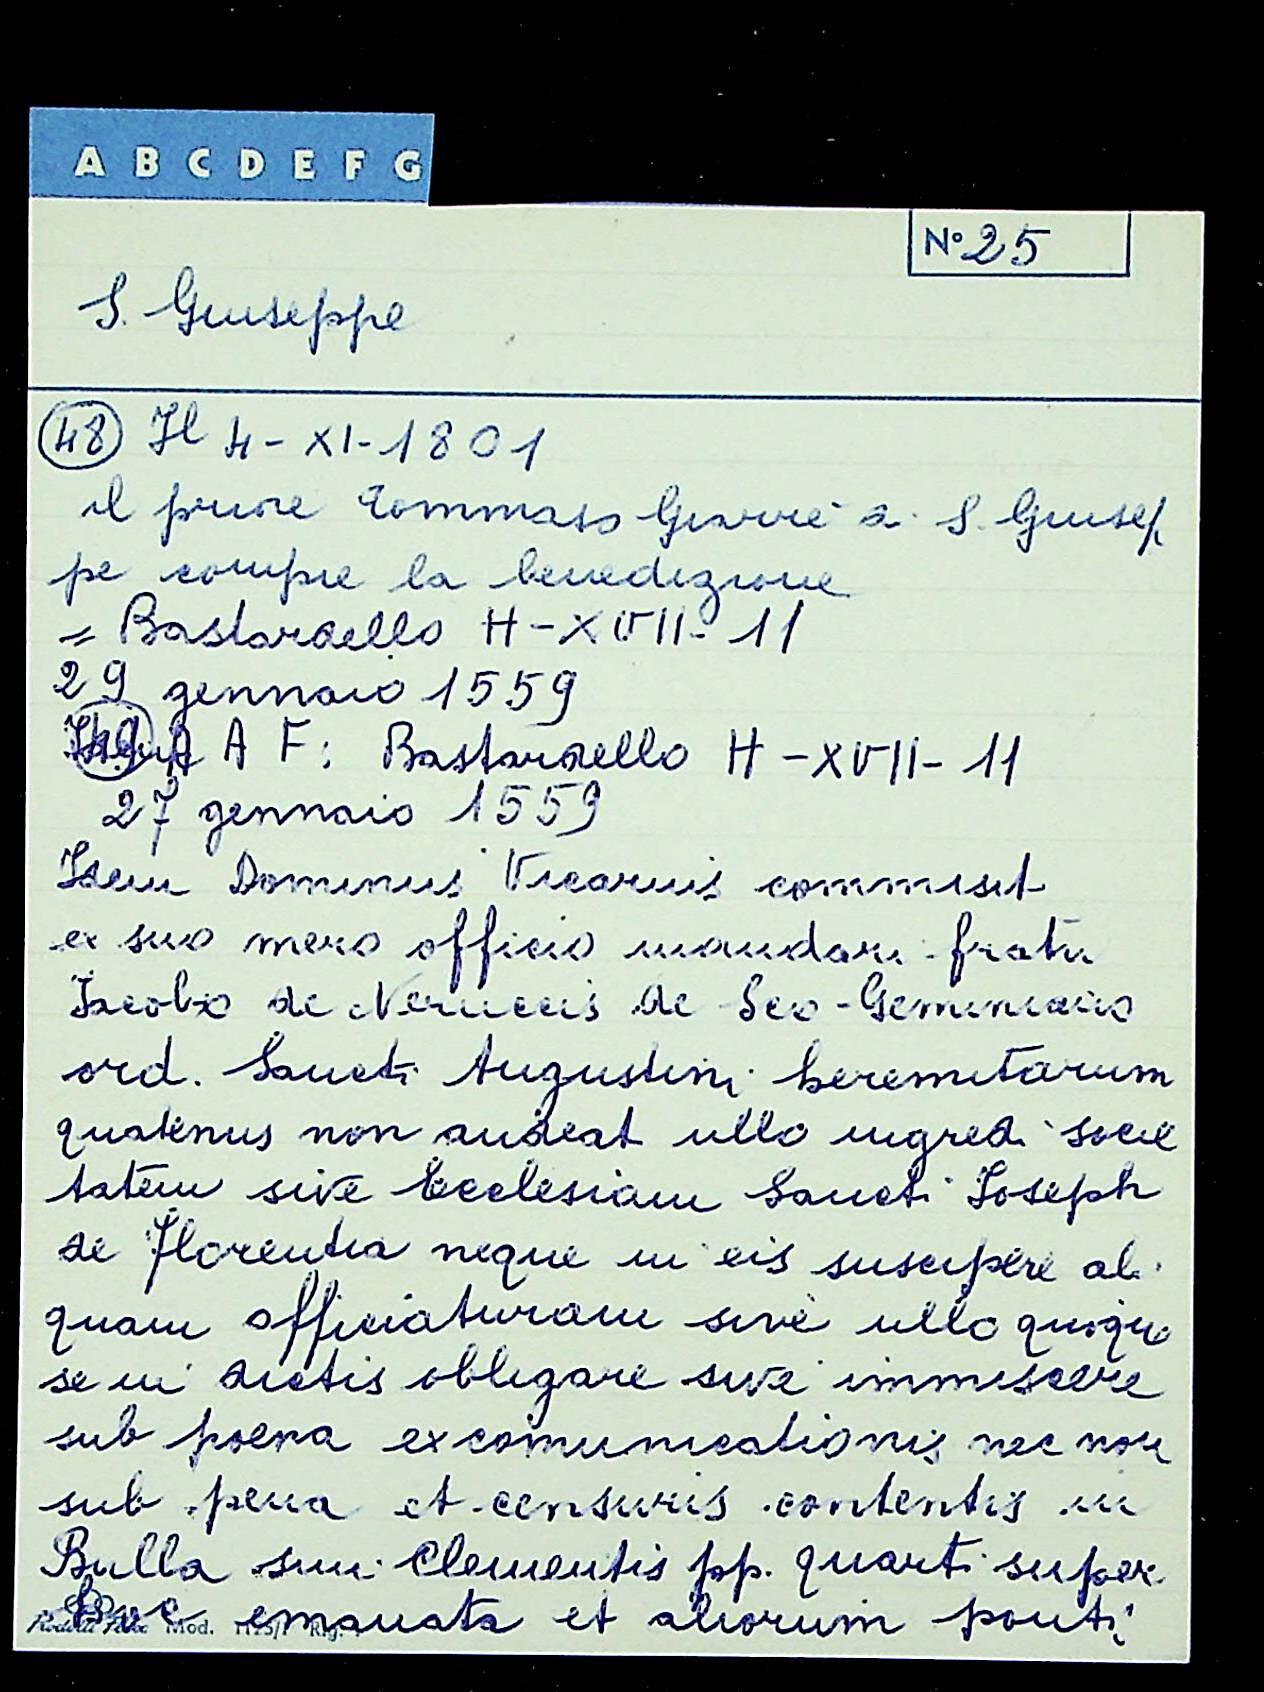 A B C D E F G
N° 25
S. Giuseppe
48 Il 4-XI-1801
il priore Tommaso a S. Giusep
pe compie la benedizione
= Bastardello H-XVII-11
29 gennaio 1559
49 A A F: Bastardello H-XVII-11
27 gennaio 1559
Item Dominus Vicarius commisit
ex suo mero officio mandari fratri
Iacobo de Neruccis de Sco-Geminiano
ord. Sancti Augustini heremitarum
quatenus non audeat ullo ingredi socie
tatem sive Ecclesiam Sancti Joseph
de Florentia neque in eis suscipere ali
quam officiaturam sive ullo quoque
se in dictis obligare sive immiscere
sub poena excomunicationis nec non
sub pena et censuris contentis in
Bulla Clementis pp. quarti super
hoc emanata et aliorum ponti
Mod.